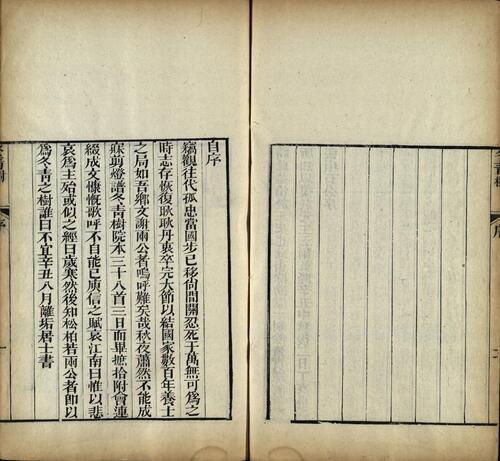 自序
竊觀往代孤忠當國步已移尚間關忍死于萬無可為之
時志存恢復耿耿丹衷卒完大節以結國家數百年養士
之局如吾鄉文謝兩公者嗚呼難矣哉秋夜蕭然不能成
寐剪燈譜冬青樹院本三十八首三日而畢摭拾附會連
綴成文慷慨歌呼不自能已庾信之賦哀江南曰惟以悲
哀為主殆或似之經曰歲寒然後知松柏若兩公者即以
為冬青之樹誰曰不宜辛丑八月離垢居士書
冬青樹
序
一